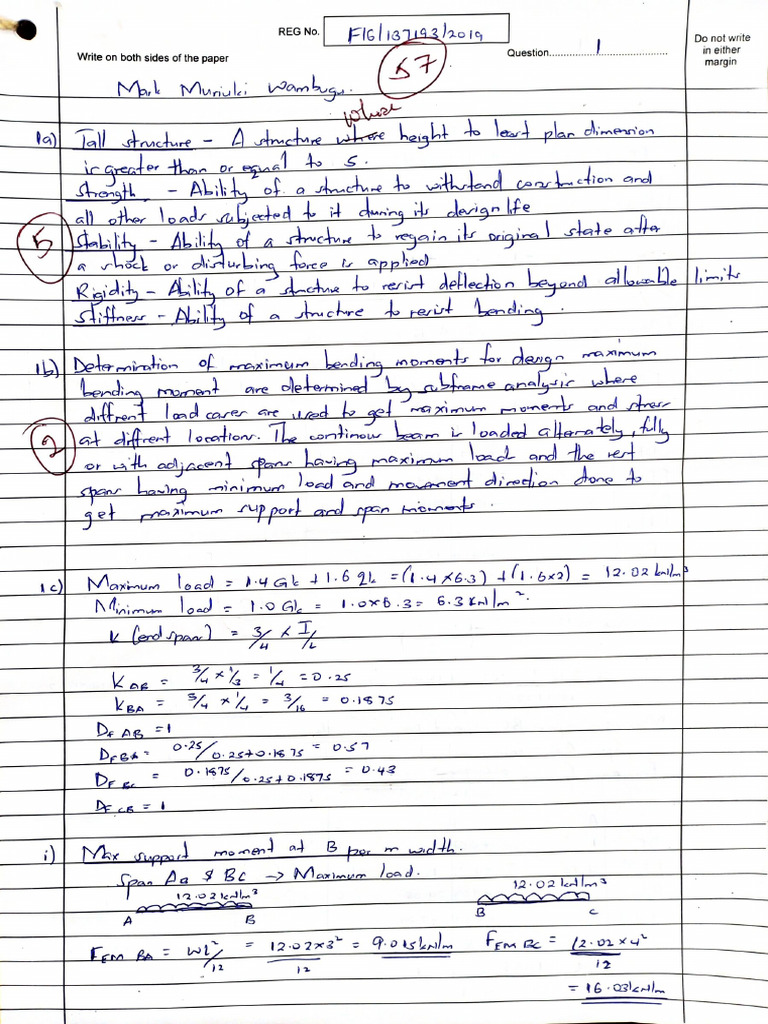 REG No. F16/137193/2019
Write on both sides of the paper
Question 1
Do not write
in either
margin
57
Mark Muriuki Wambugu.
whose
1a) Tall structure - A structure where height to least plan dimension
is greater than or equal to 5.
Strength - Ability of a structure to withstand construction and
all other loads subjected to it during its design life
5
Stability - Ability of a structure to regain its original state after
a shock or disturbing force is applied
Rigidity - Ability of a structure to resist deflection beyond allowable limits
Stiffness - Ability of a structure to resist bending.
1b) Determination of maximum bending moments for design maximum
bending moment are determined by subframe analysis where
diffrent load cases are used to get maximum moments and stress
2
at diffrent locations. The continous beam is loaded alternately, fully
or with adjacent spans having maximum load and the rest
spans having minimum load and movement direction done to
get maximum support and span moments.
1c) Maximum load = 1.4 Gk + 1.6 qk = (1.4×6.3) + (1.6×2) = 12.02 kN/m³
Minimum load = 1.0 Gk = 1.0×6.3 = 6.3 kN/m².
K (end span) = 3/4 × I/L
KAB = 3/4 × 1/3 = 1/4 = 0.25
KBA = 3/4 × 1/4 = 3/16 = 0.1875
DF AB = 1
DF BA = 0.25/0.25+0.1875 = 0.57
DF BC = 0.1875/0.25+0.1875 = 0.43
DF CB = 1
i) Max support moment at B per m width.
Span Aa & BC → Maximum load.
12.02 kN/m³
12.02 kN/m³
A B
B C
FEM BA = wl²/12 = 12.02×3²/12 = 9.015 kN/m
FEM BC = 12.02×4²/12
= 16.03 kN/m